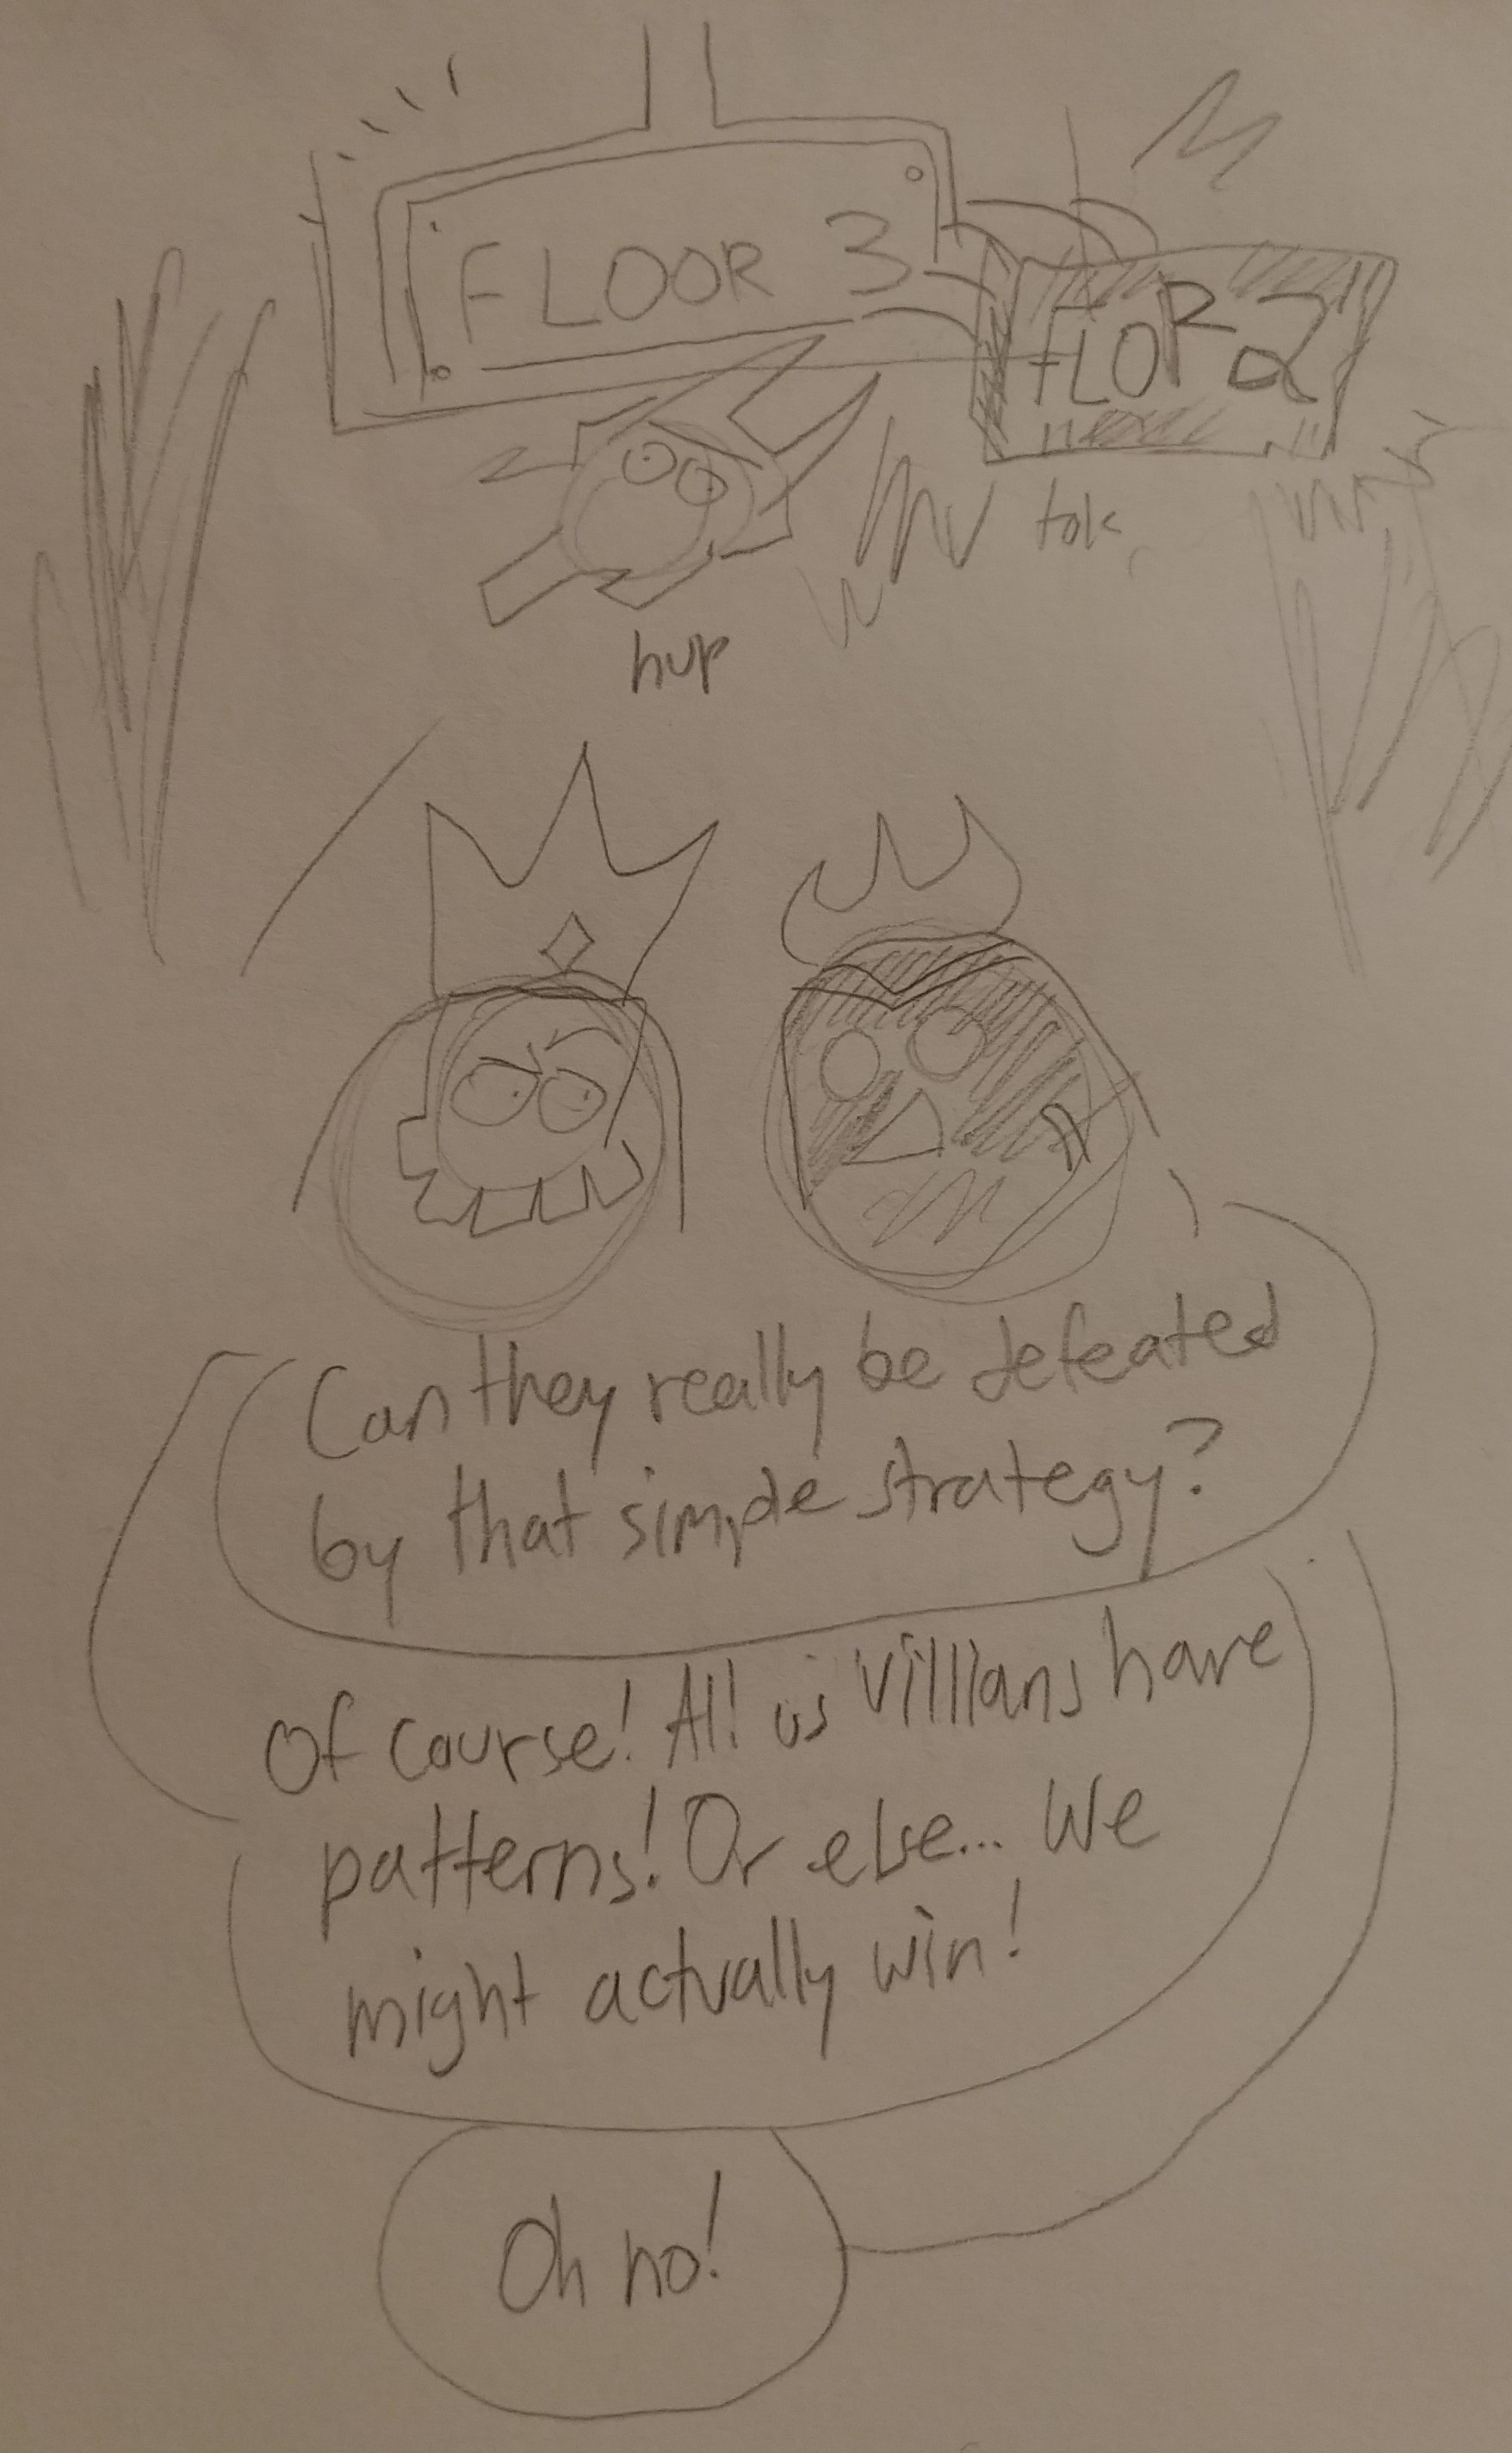 FLOOR 3
FLOR 2
tok
hup
Can they really be defeated
by that simple strategy?
Of course! All us Villians have
patterns! Or else... We
might actually win!
Oh no!